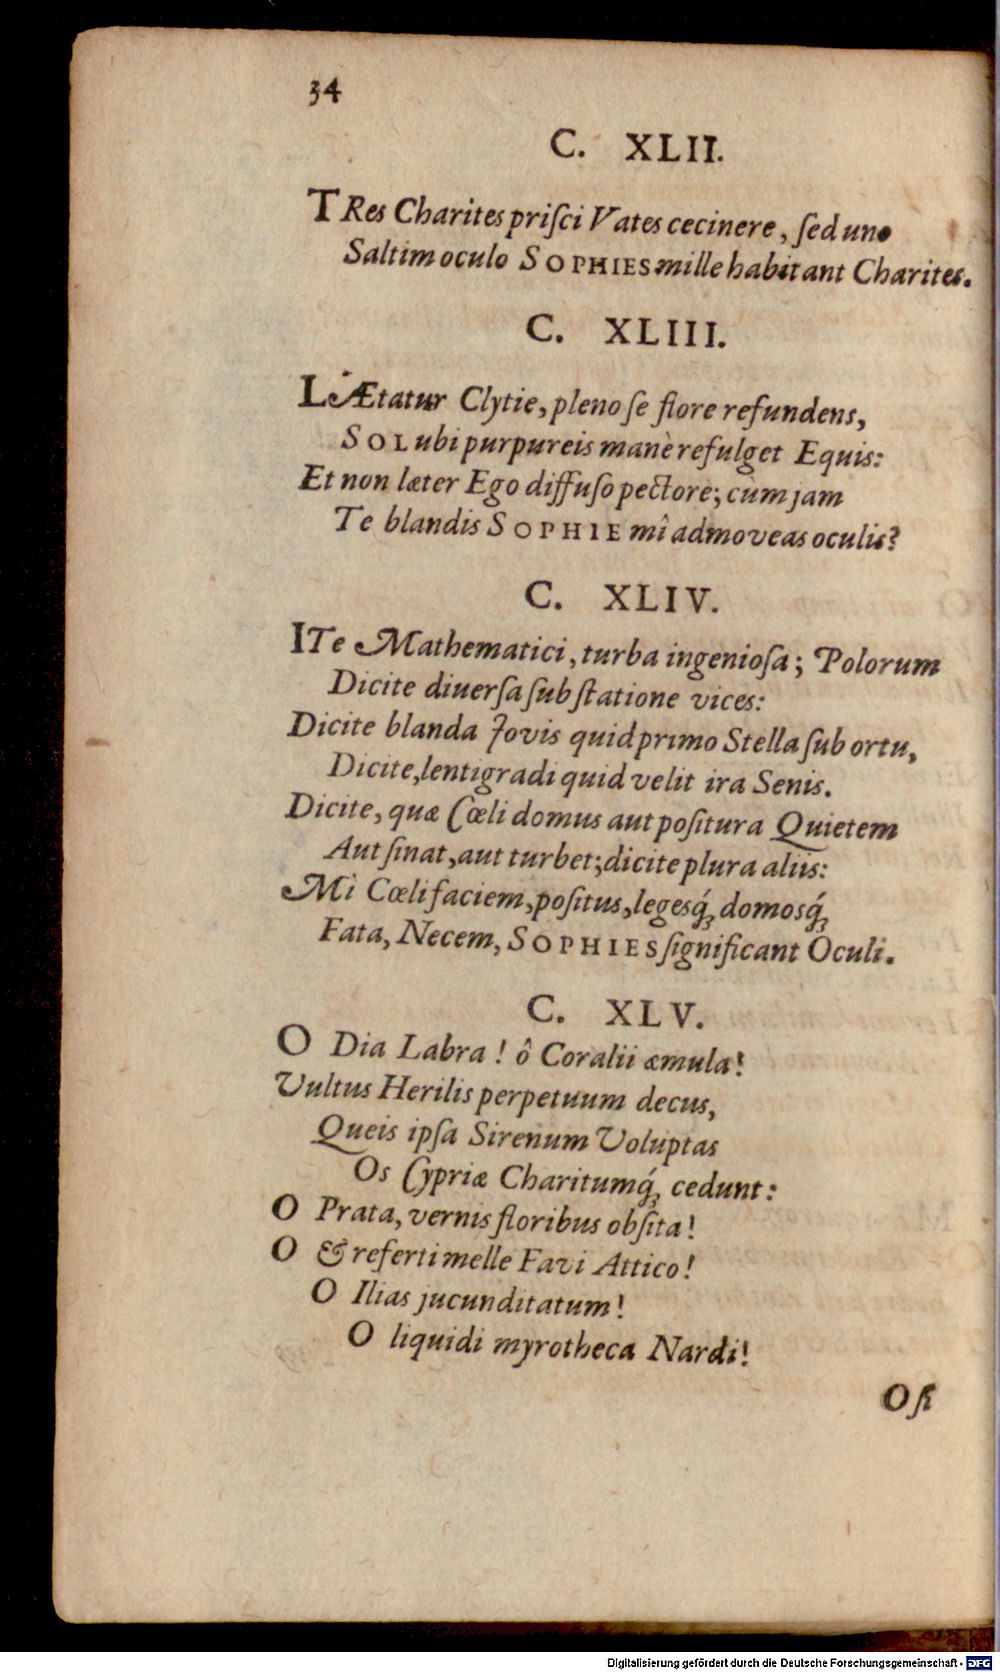 34
C. XLII.
TRes Charites priſci Vates cecinere, ſed uno
Saltim oculo SOPHIES mille habitant Charites.
C. XLIII.
LÆtatur Clytie, pleno ſe flore refundens,
SOL ubi purpureis manè refulget Equis:
Et non læter Ego diffuſo pectore; cùm jam
Te blandis SOPHIE mî admoveas oculis?
C. XLIV.
ITe Mathematici, turba ingenioſa; Polorum
Dicite diuerſa ſub ſtatione vices:
Dicite blanda Jovis quid primo Stella ſub ortu,
Dicite, lentigradi quid velit ira Senis.
Dicite, quæ Cœli domus aut poſitura Quietem
Aut ſinat, aut turbet; dicite plura aliis:
Mì Cœli faciem, poſitus, legesq́; domosq́;
Fata, Necem, SOPHIES ſignificant Oculi.
C. XLV.
O Dia Labra! ô Coralii æmula!
Vultus Herilis perpetuum decus,
Queis ipſa Sirenum Voluptas
Os Cypriæ Charitumq́; cedunt:
O Prata, vernis floribus obſita!
O & referti melle Favi Attico!
O Ilias jucunditatum!
O liquidi myrotheca Nardi!
O ſi
Digitalisierung gefördert durch die Deutsche Forschungsgemeinschaft - DFG